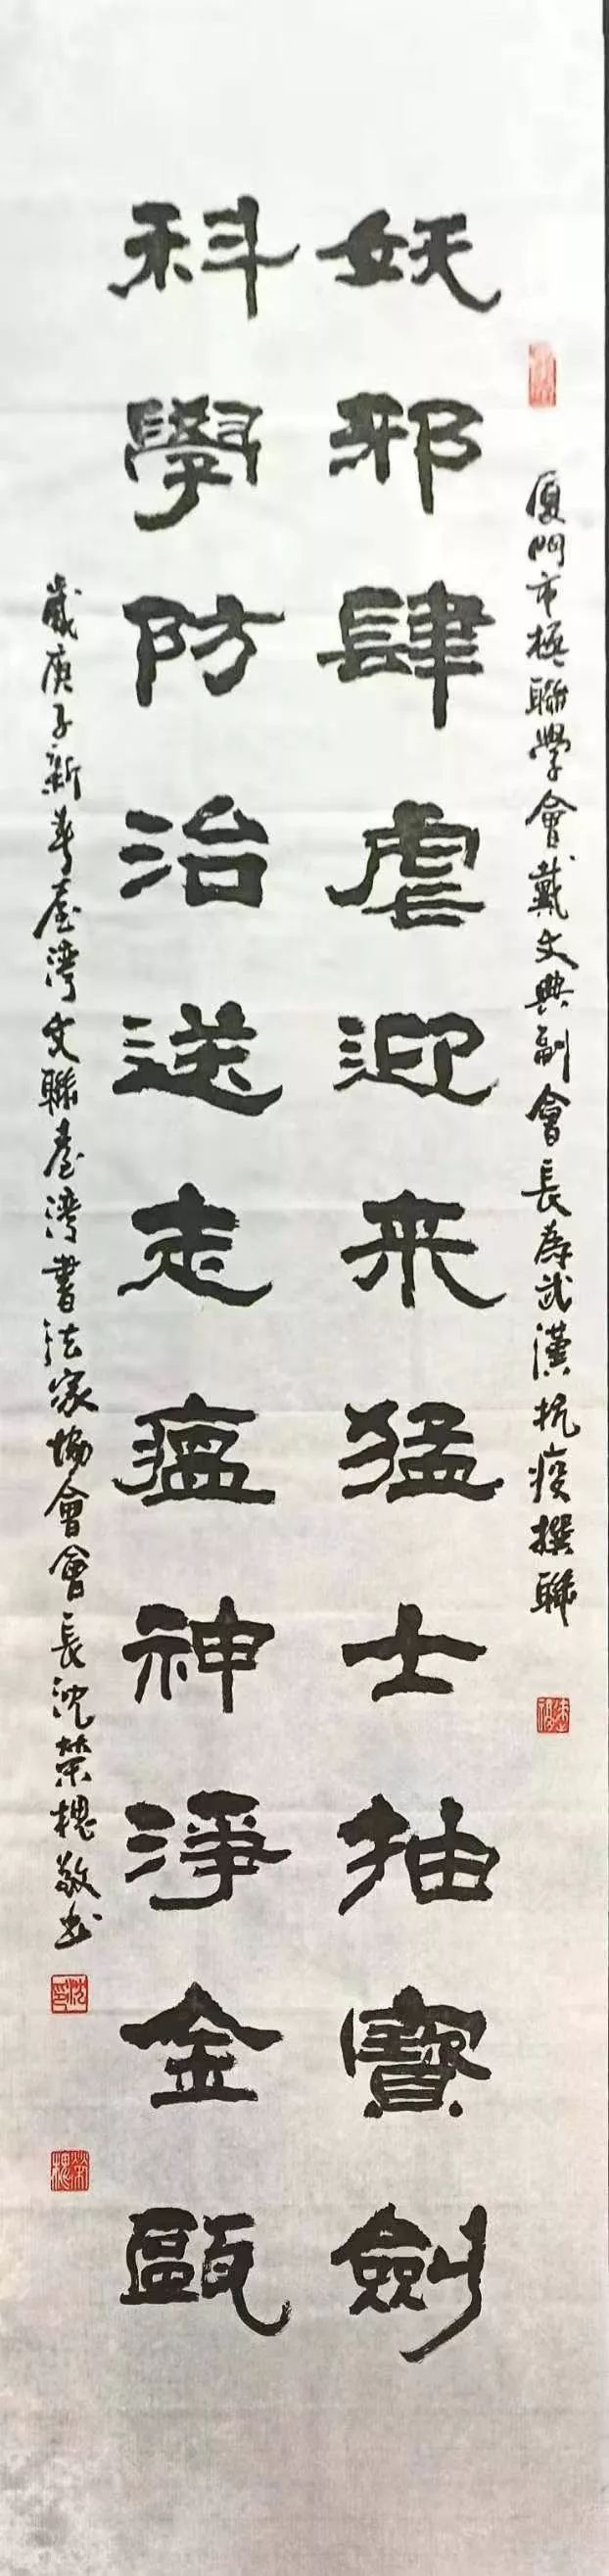 厦門市楹聯學會戴文典副會長為武漢抗疫撰聯
妖邪肆虐迎来猛士抽寶劍
科學防治送走瘟神淨金甌
歲庚子新春臺灣文聯臺灣書法家協會會長沈榮槐敬书
沈印
榮槐